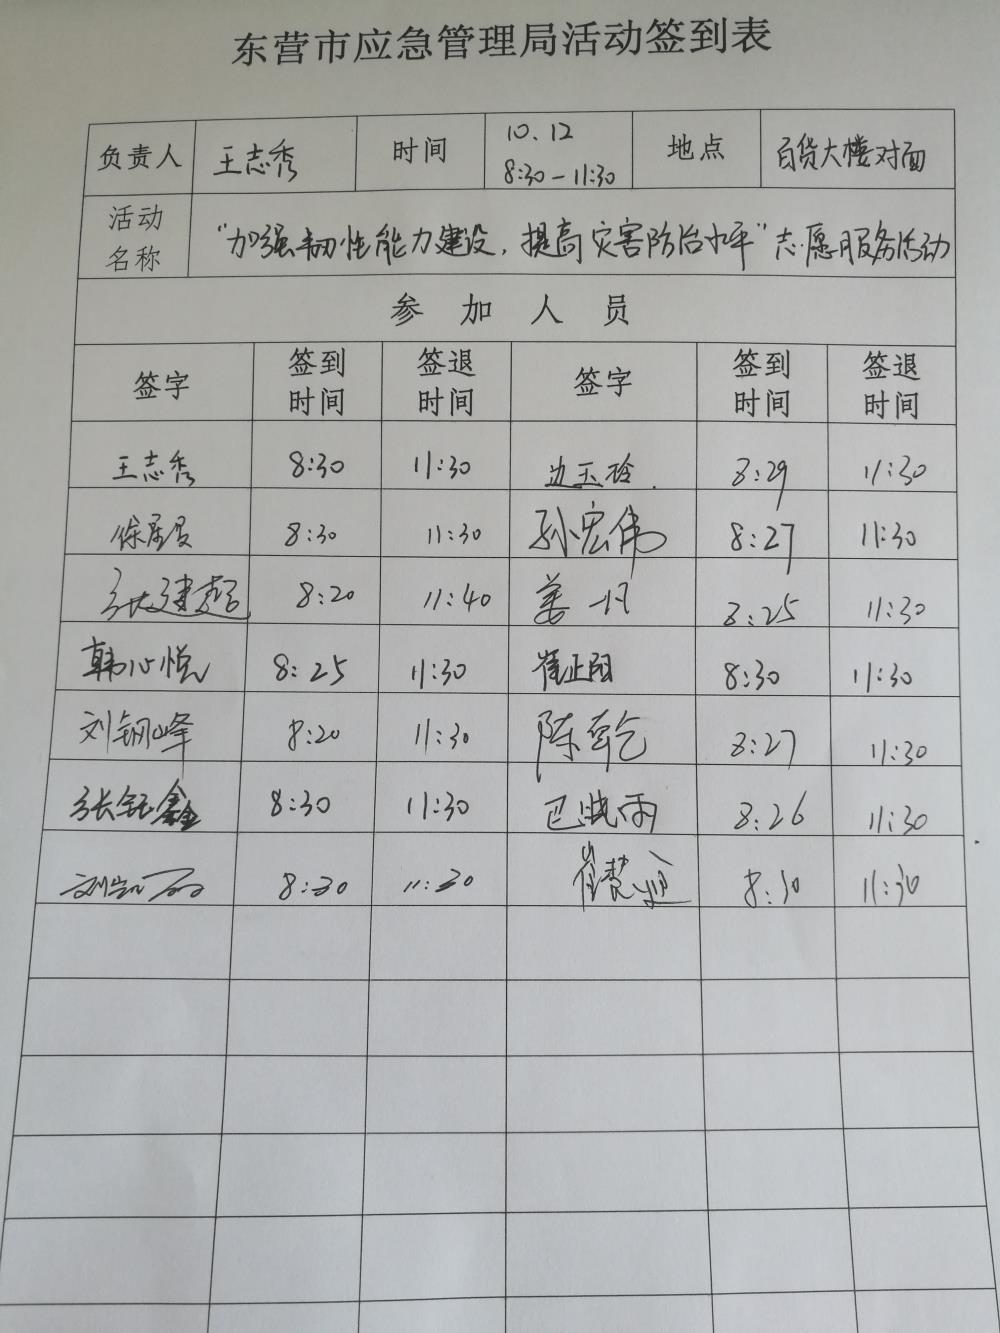 东营市应急管理局活动签到表
负责人 王志秀 时间 10.12 8:30-11:30 地点 百货大楼对面
活动名称 "加强韧性能力建设，提高灾害防治水平"志愿服务活动
参加人员
签字 签到时间 签退时间 签字 签到时间 签退时间
王志秀 8:30 11:30 边玉玲 8:29 11:30
徐 8:30 11:30 孙宏伟 8:27 11:30
张建超 8:20 11:40 姜 8:25 11:30
韩心悦 8:25 11:30 崔正阳 8:30 11:30
刘钢峰 8:20 11:30 陈乾 8:27 11:30
张钰鑫 8:30 11:30 巴 雨 8:26 11:30
刘 8:30 11:30 崔楚 8:30 11:30